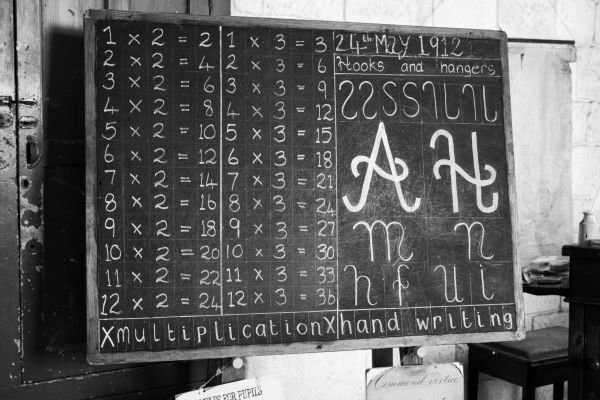 1 × 2 = 2
2 × 2 = 4
3 × 2 = 6
4 × 2 = 8
5 × 2 = 10
6 × 2 = 12
7 × 2 = 14
8 × 2 = 16
9 × 2 = 18
10 × 2 = 20
11 × 2 = 22
12 × 2 = 24
1 × 3 = 3
2 × 3 = 6
3 × 3 = 9
4 × 3 = 12
5 × 3 = 15
6 × 3 = 18
7 × 3 = 21
8 × 3 = 24
9 × 3 = 27
10 × 3 = 30
11 × 3 = 33
12 × 3 = 36
24th May 1912
Hooks and hangers
A H
m n
h f u i
X multiplication X handwriting
FOR PUPILS
Commend virtue